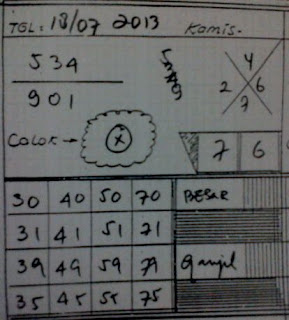 TGL: 18/07 2013 Kamis.
534
901
4
2 6
7
Color → X
7 6
30 40 50 70 BESAR
31 41 51 71
39 49 59 79 Ganjil
35 45 55 75